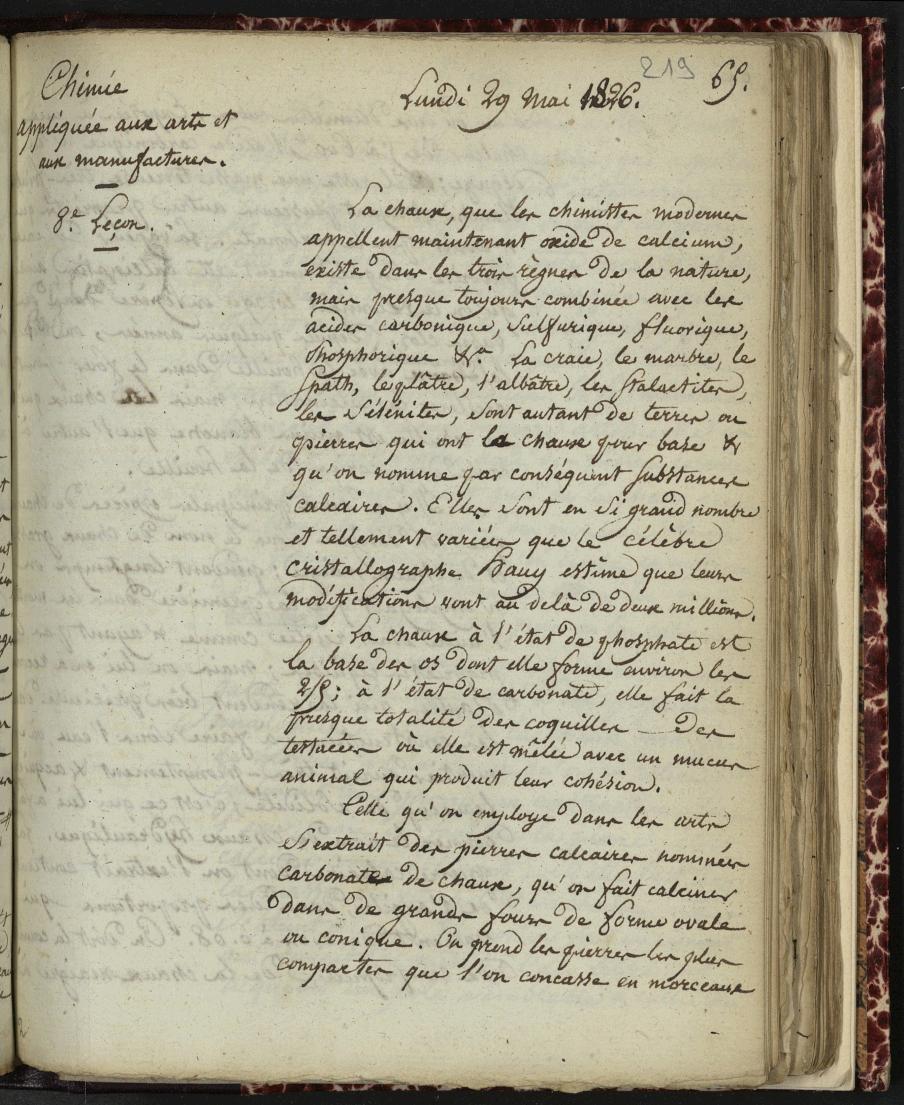 219 65.
Chimie
appliquée aux arts et
aux manufactures.
8.e Leçon.
Lundi 29 Mai 1826.
La chaux, que les chimistes modernes
appellent maintenant oxide de calcium,
existe dans les trois règnes de la nature,
mais presque toujours combinée avec les
acides carbonique, sulfurique, fluorique,
phosphorique &.a La craie, le marbre, le
spath, le plâtre, l'albâtre, les stalactites,
les sélénites, sont autant de terres ou
pierres qui ont la chaux pour base &
qu'on nomme par conséquent substances
calcaires. Elles sont en si grand nombre
et tellement variées que le célèbre
cristallographe Hauy estime que leurs
modifications vont au delà de deux millions.
La chaux à l'état de phosphate est
la base des os dont elle forme environ les
2/5; à l'état de carbonate, elle fait la
presque totalité des coquilles des
testacées où elle est mêlée avec un mucus
animal qui produit leur cohésion.
Celle qu'on employe dans les arts
s'extrait des pierres calcaires nommées
carbonate de chaux, qu'on fait calciner
dans de grands fours de forme ovale
ou conique. On prend les pierres les plus
compactes que l'on concasse en morceaux